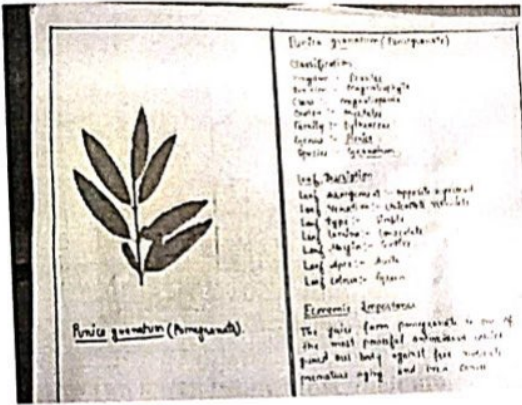 Punica granatum (Pomegranate).
Punica granatum (Pomegranate)
Classification
Kingdom :- Plantae
Division :- Magnoliophyta
Class :- Magnoliopsida
Order :- Myrtales
Family :- Lythraceae
Genus :- Punica
Species :- Granatum
Leaf Description
Leaf Arrangement :- opposite
Leaf Venation :- reticulate
Leaf Type :- Simple
Leaf Lamina :- Lanceolate
Leaf Margin :- Entire
Leaf Apex :- Acute
Leaf colour :- Green
Economic Importance
The juice from pomegranate is one of
the most powerful antioxidant
our body against free
premature aging and even cancer